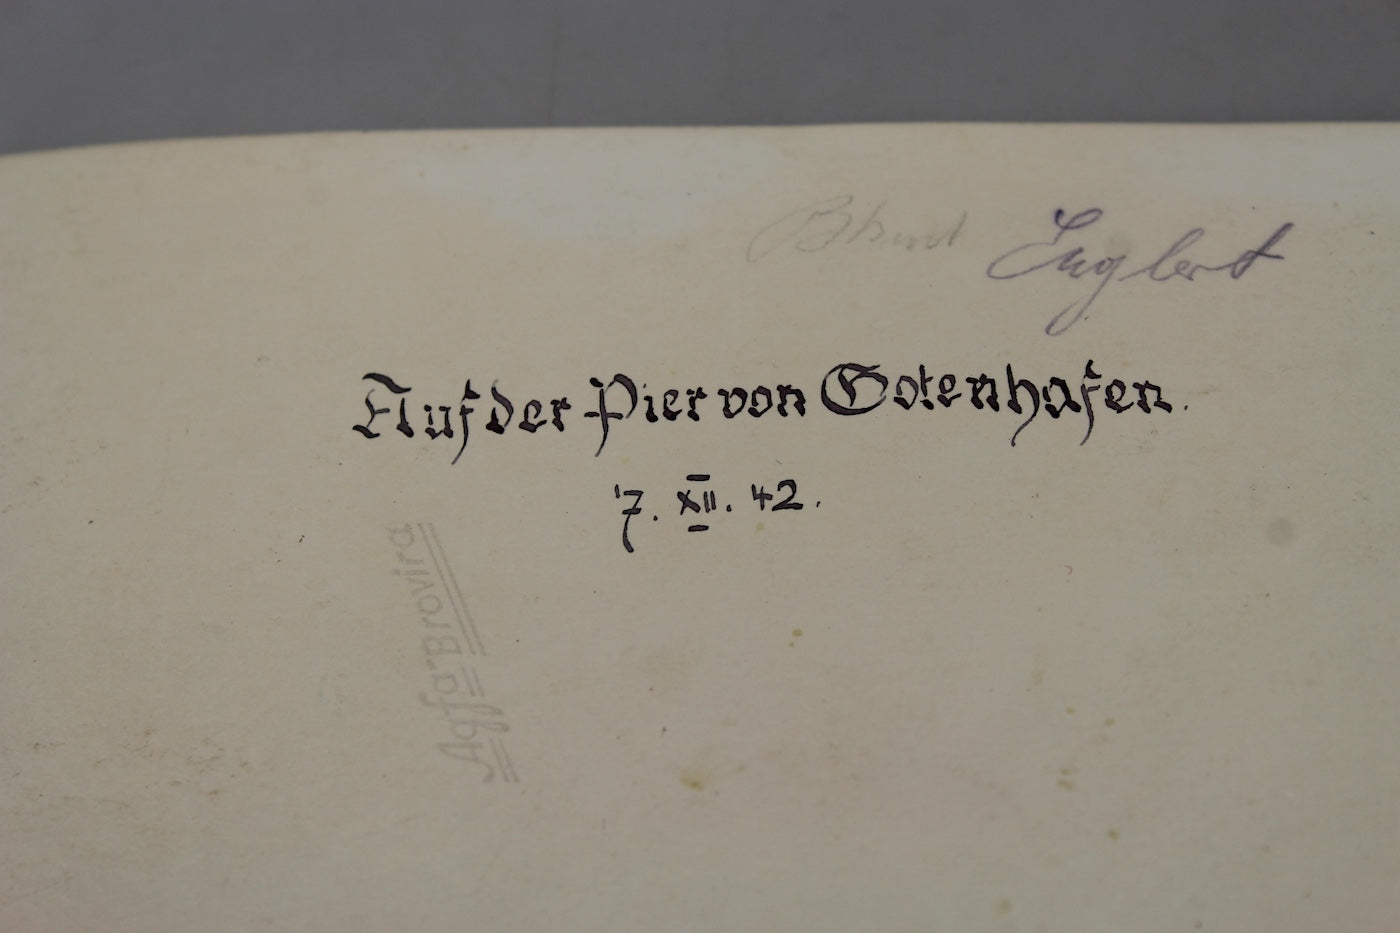 Englert
Auf der Pier von Gotenhafen.
7. XII. 42.
Agfa Brovira